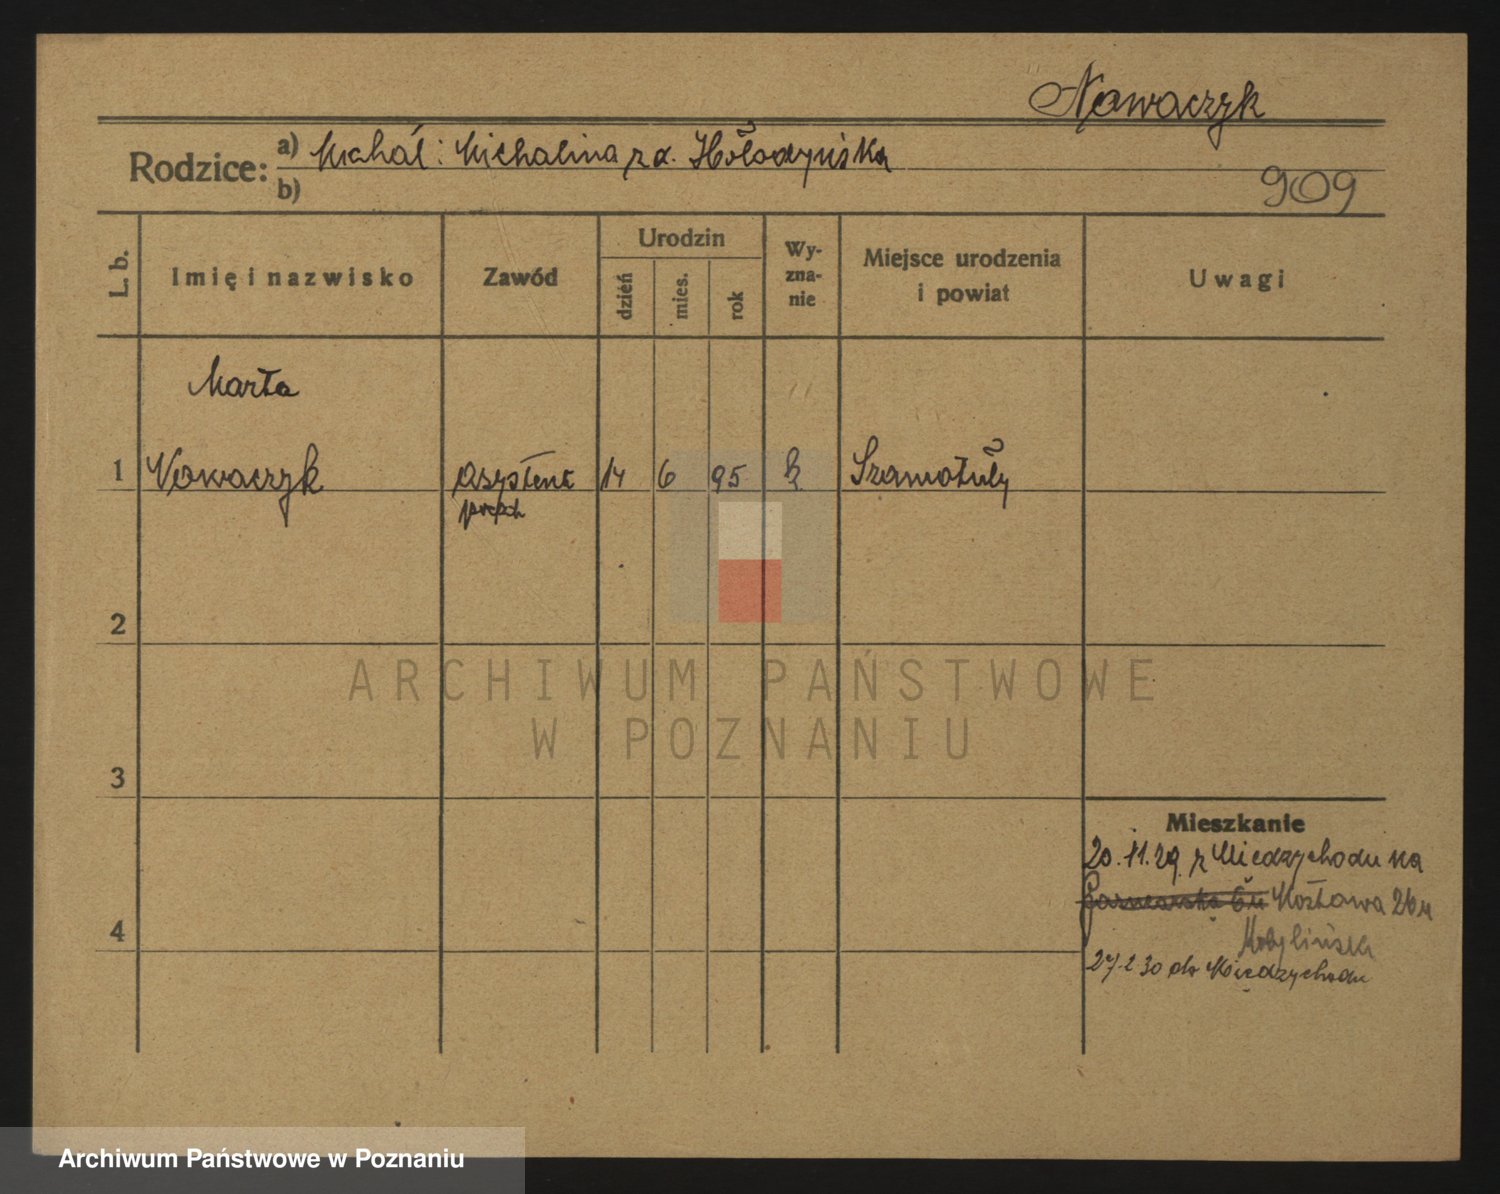 Nowaczyk
Rodzice: a) Michał i Michalina z d. Hołodyńska
b)
909
L. b.
Imię i nazwisko
Zawód
Urodzin
dzień
mies.
rok
Wy-
zna-
nie
Miejsce urodzenia
i powiat
Uwagi
Marta
1 Nowaczyk asystent 14 6 95 k Szamotuły
2
3
4
Mieszkanie
20.11.29 z Międzychodu na
6 m 26 m
Kobylińska
27.2.30 do Międzychodu
ARCHIWUM PAŃSTWOWE
W POZNANIU
Archiwum Państwowe w Poznaniu